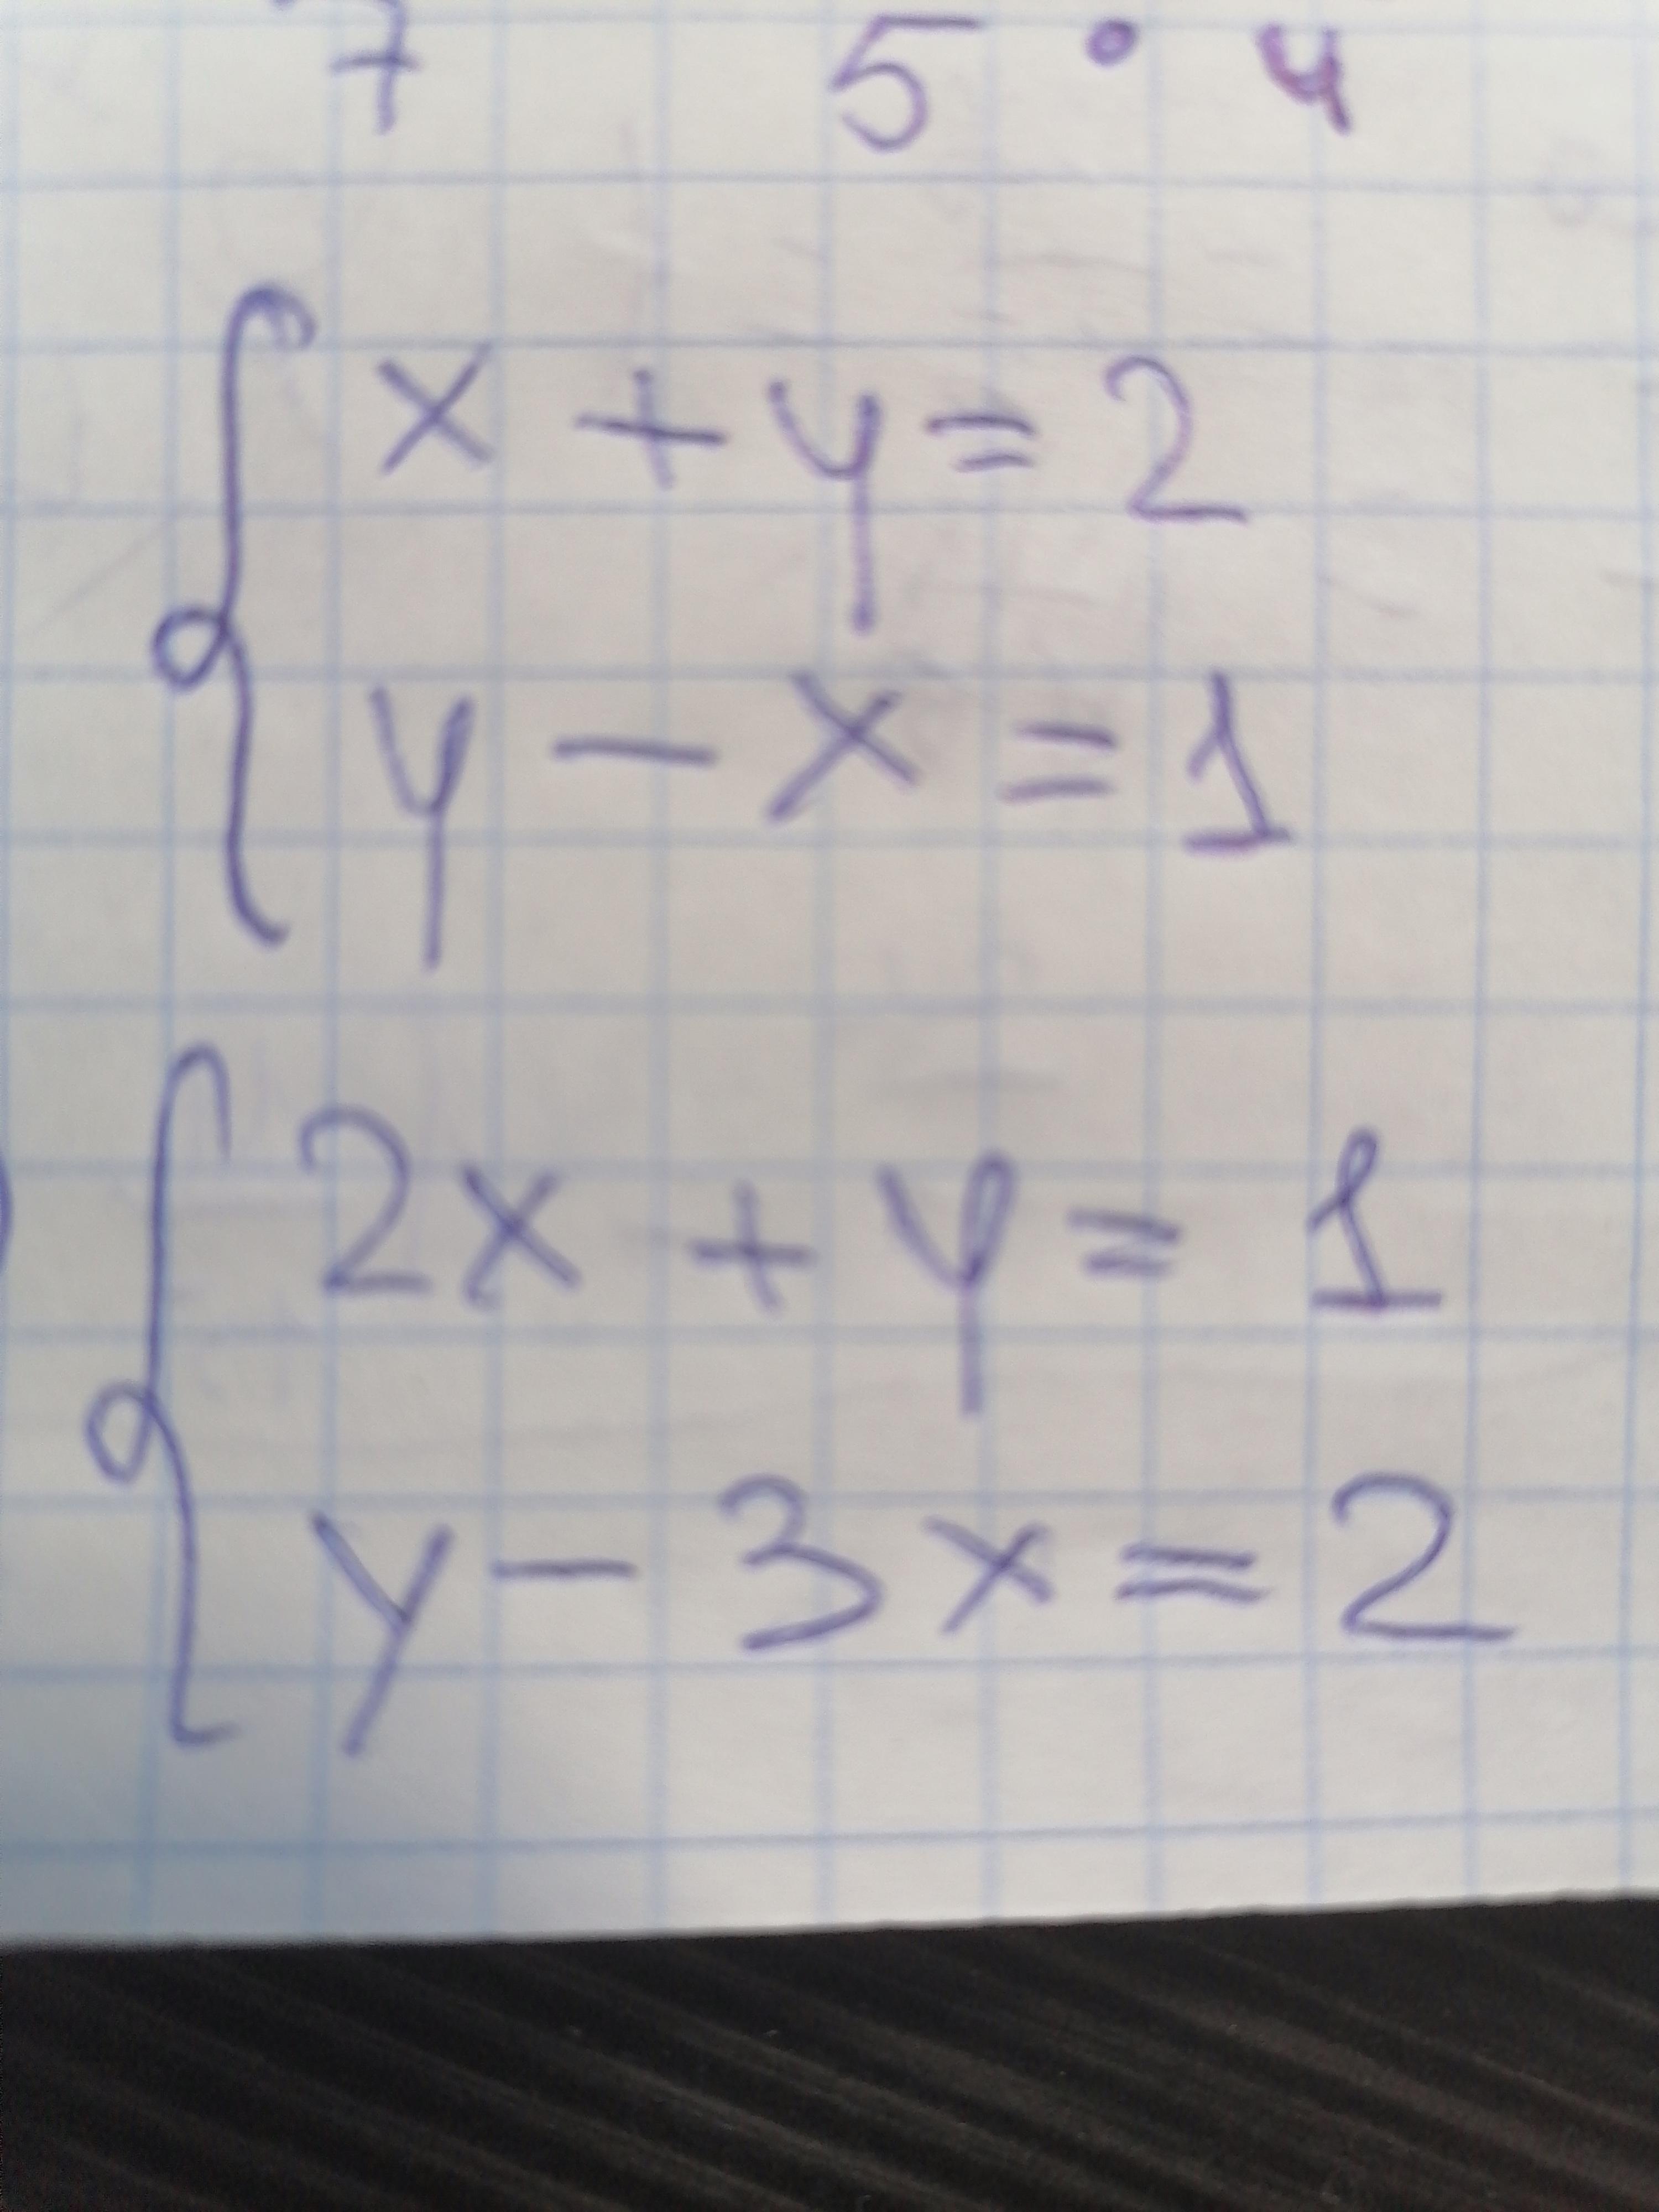 7 5 · 4
x + y = 2
y - x = 1
2x + y = 1
y - 3x = 2